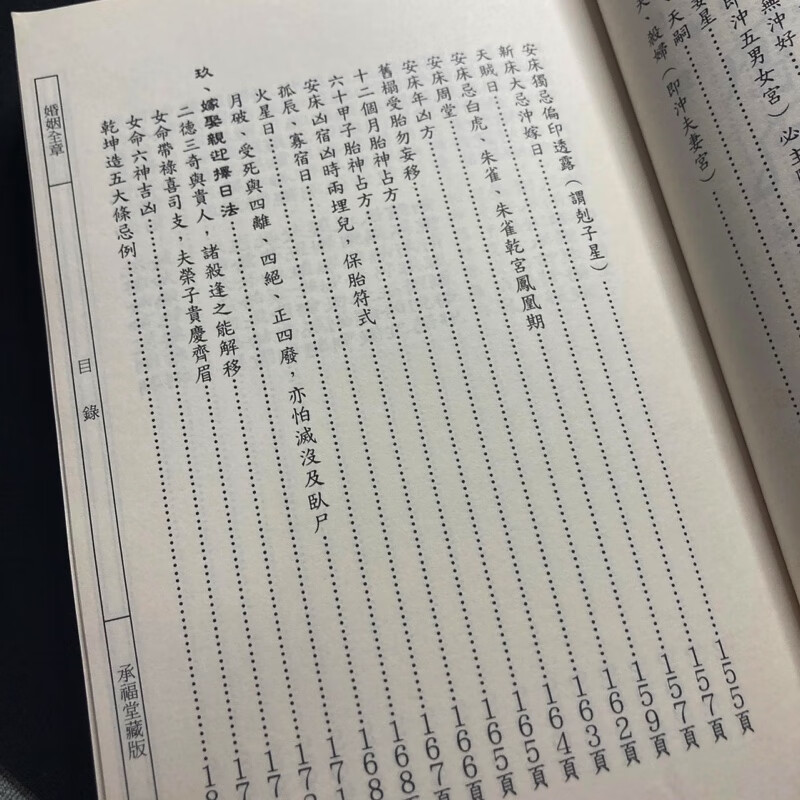 必主
即沖五男女宮）
無沖好
妻星
天嗣
夭、殺婦（即沖夫妻宮）
安床獨忌偏印透露（謂剋子星）155頁
新床大忌沖嫁日157頁
天賊日157頁
安床忌白虎、朱雀、朱雀乾宮鳳凰期159頁
安床周堂162頁
安床年凶方163頁
舊榻受胎勿妄移164頁
十二個月胎神占方165頁
六十甲子胎神占方165頁
安床凶宿凶時兩埋兒，保胎符式166頁
孤辰、寡宿日167頁
火星日168頁
月破、受死與四離、四絕、正四廢，亦怕滅沒及臥尸168頁
玖、嫁娶親迎擇日法171
二德三奇與貴人，諸殺逢之能解移17
女命帶祿喜司支，夫榮子貴慶齊眉17
女命六神吉凶17
乾坤造五大條忌例18
婚姻全章
目錄
承福堂藏版